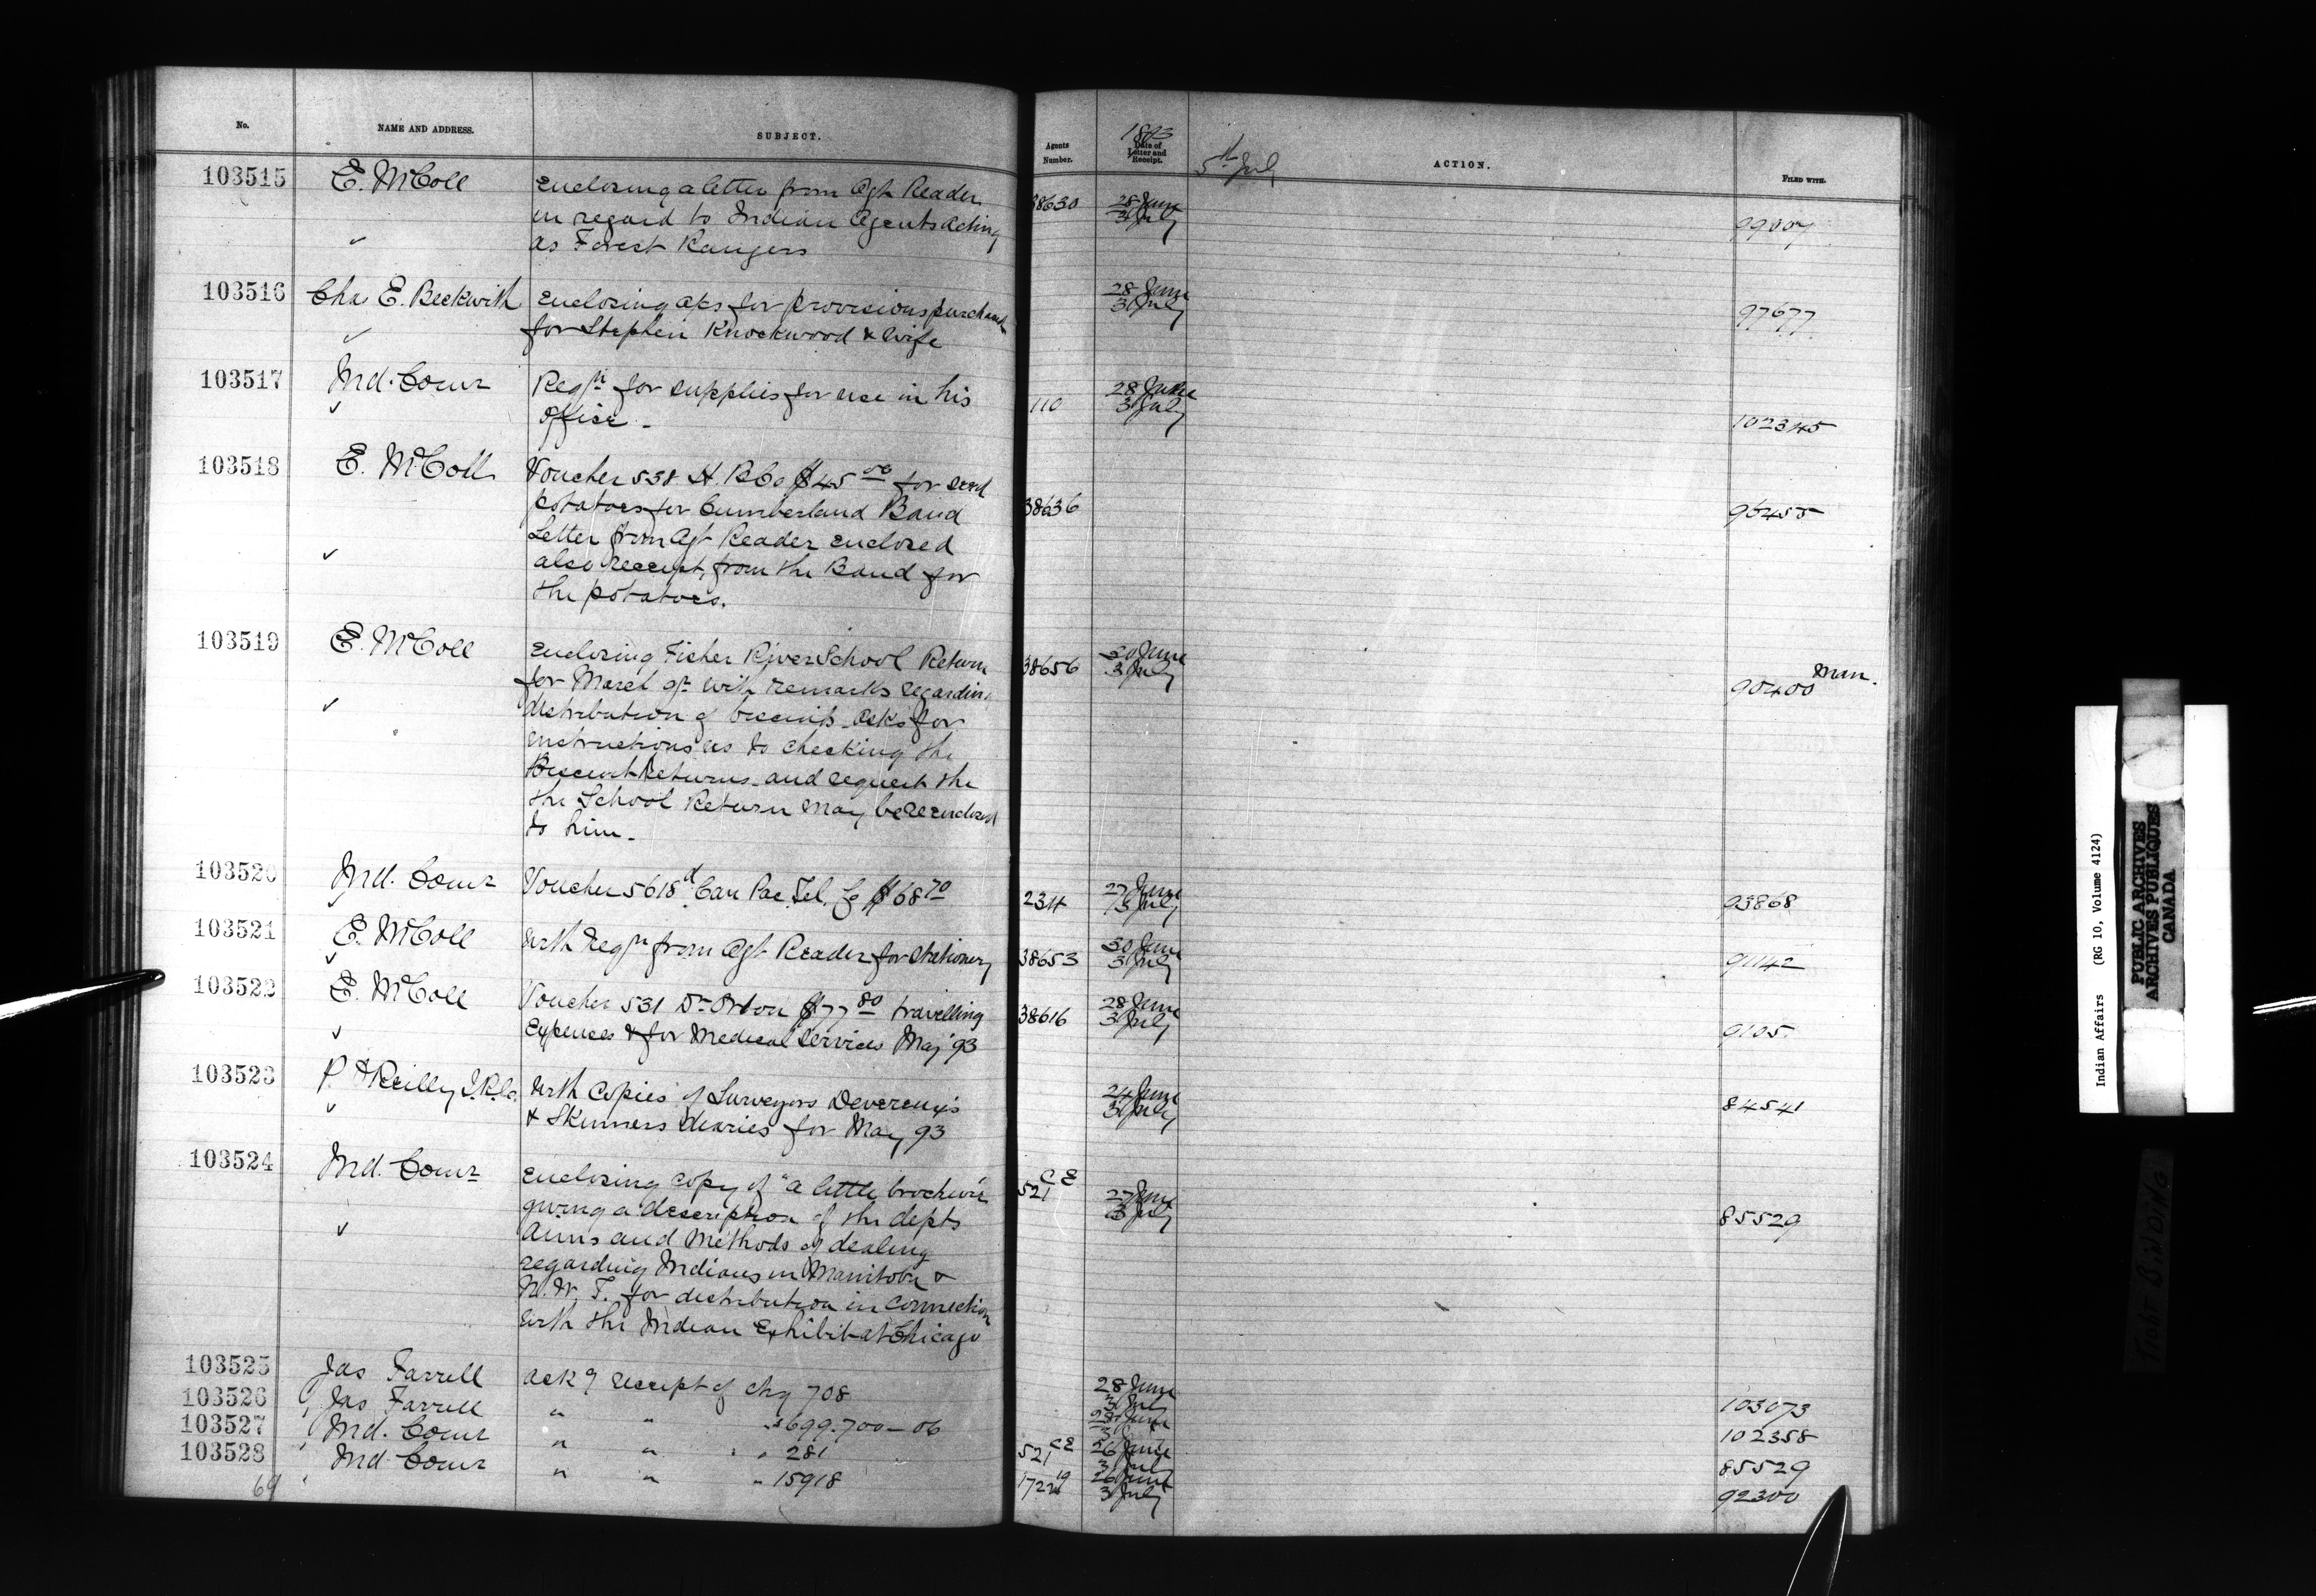 No. NAME AND ADDRESS. SUBJECT. Agents Number. 1893 Date of Letter and Receipt. 5th July ACTION. FILED WITH.
103515 E. McColl Enclosing a letter from Agt Reader 38630 28 June
in regard to Indian Agents acting 3 July 99007
✓ as Forest Rangers
103516 Chas E. Beckwith Enclosing a/cs for provisions purchased 28 June
✓ for Stephen Knockwood & wife 3 July 97677
103517 Ind. Comr Reqn for supplies for use in his 110 28 June
✓ office - 3 July 102345
103518 E. McColl Voucher 538 H. B Co $45 00 for seed
potatoes for Cumberland Band 38636 96455
Letter from Agt Reader enclosed
✓ also receipt from the Band for
the potatoes.
103519 E. McColl Enclosing Fisher River School Return 38656 30 June
for March qr with remarks regarding 3 July 90400 Man.
✓ distribution of biscuits - asks for
instructions as to checking the
Biscuit Returns - and request the
the School Return may be reenclosed
to him -
103520 Ind. Comr Voucher 5618d Can Pac Tel. Co $68 70 234 27 June
✓ 3 July 93868
103521 E. McColl With Reqn from Agt Reader for stationery 38653 30 June
✓ 3 July 91142
103522 E. McColl Voucher 531 Dr Orton $77 80 travelling 38616 28 June
✓ Expenses & for Medical Services May 93 3 July 9105
103523 P. O'Reilly I.R.C. With Copies of Surveyors Devereux's 24 June
✓ & Skinners diaries for May 93 3 July 84541
103524 Ind. Comr Enclosing copy of "a little brochure 521 CE 27 June
giving a description of the depts 3 July 85529
✓ Aims and Methods of dealing
regarding Indians in Manitoba &
N. W. T. for distribution in connection
with the Indian Exhibit at Chicago
103525 Jas Farrell Ack g receipt of chq 708 28 June 3 July 103073
103526 Jas Farrell " " " 699.700-06 28 June 3 102358
103527 Ind. Comr " " " 281 521 CE 26 June 3 July 85529
103528 Ind Comr " " " 15918 26 June 3 July 92300
69
Indian Affairs (RG 10, Volume 4124)
PUBLIC ARCHIVES
ARCHIVES PUBLIQUES
CANADA
TIGHT BINDING